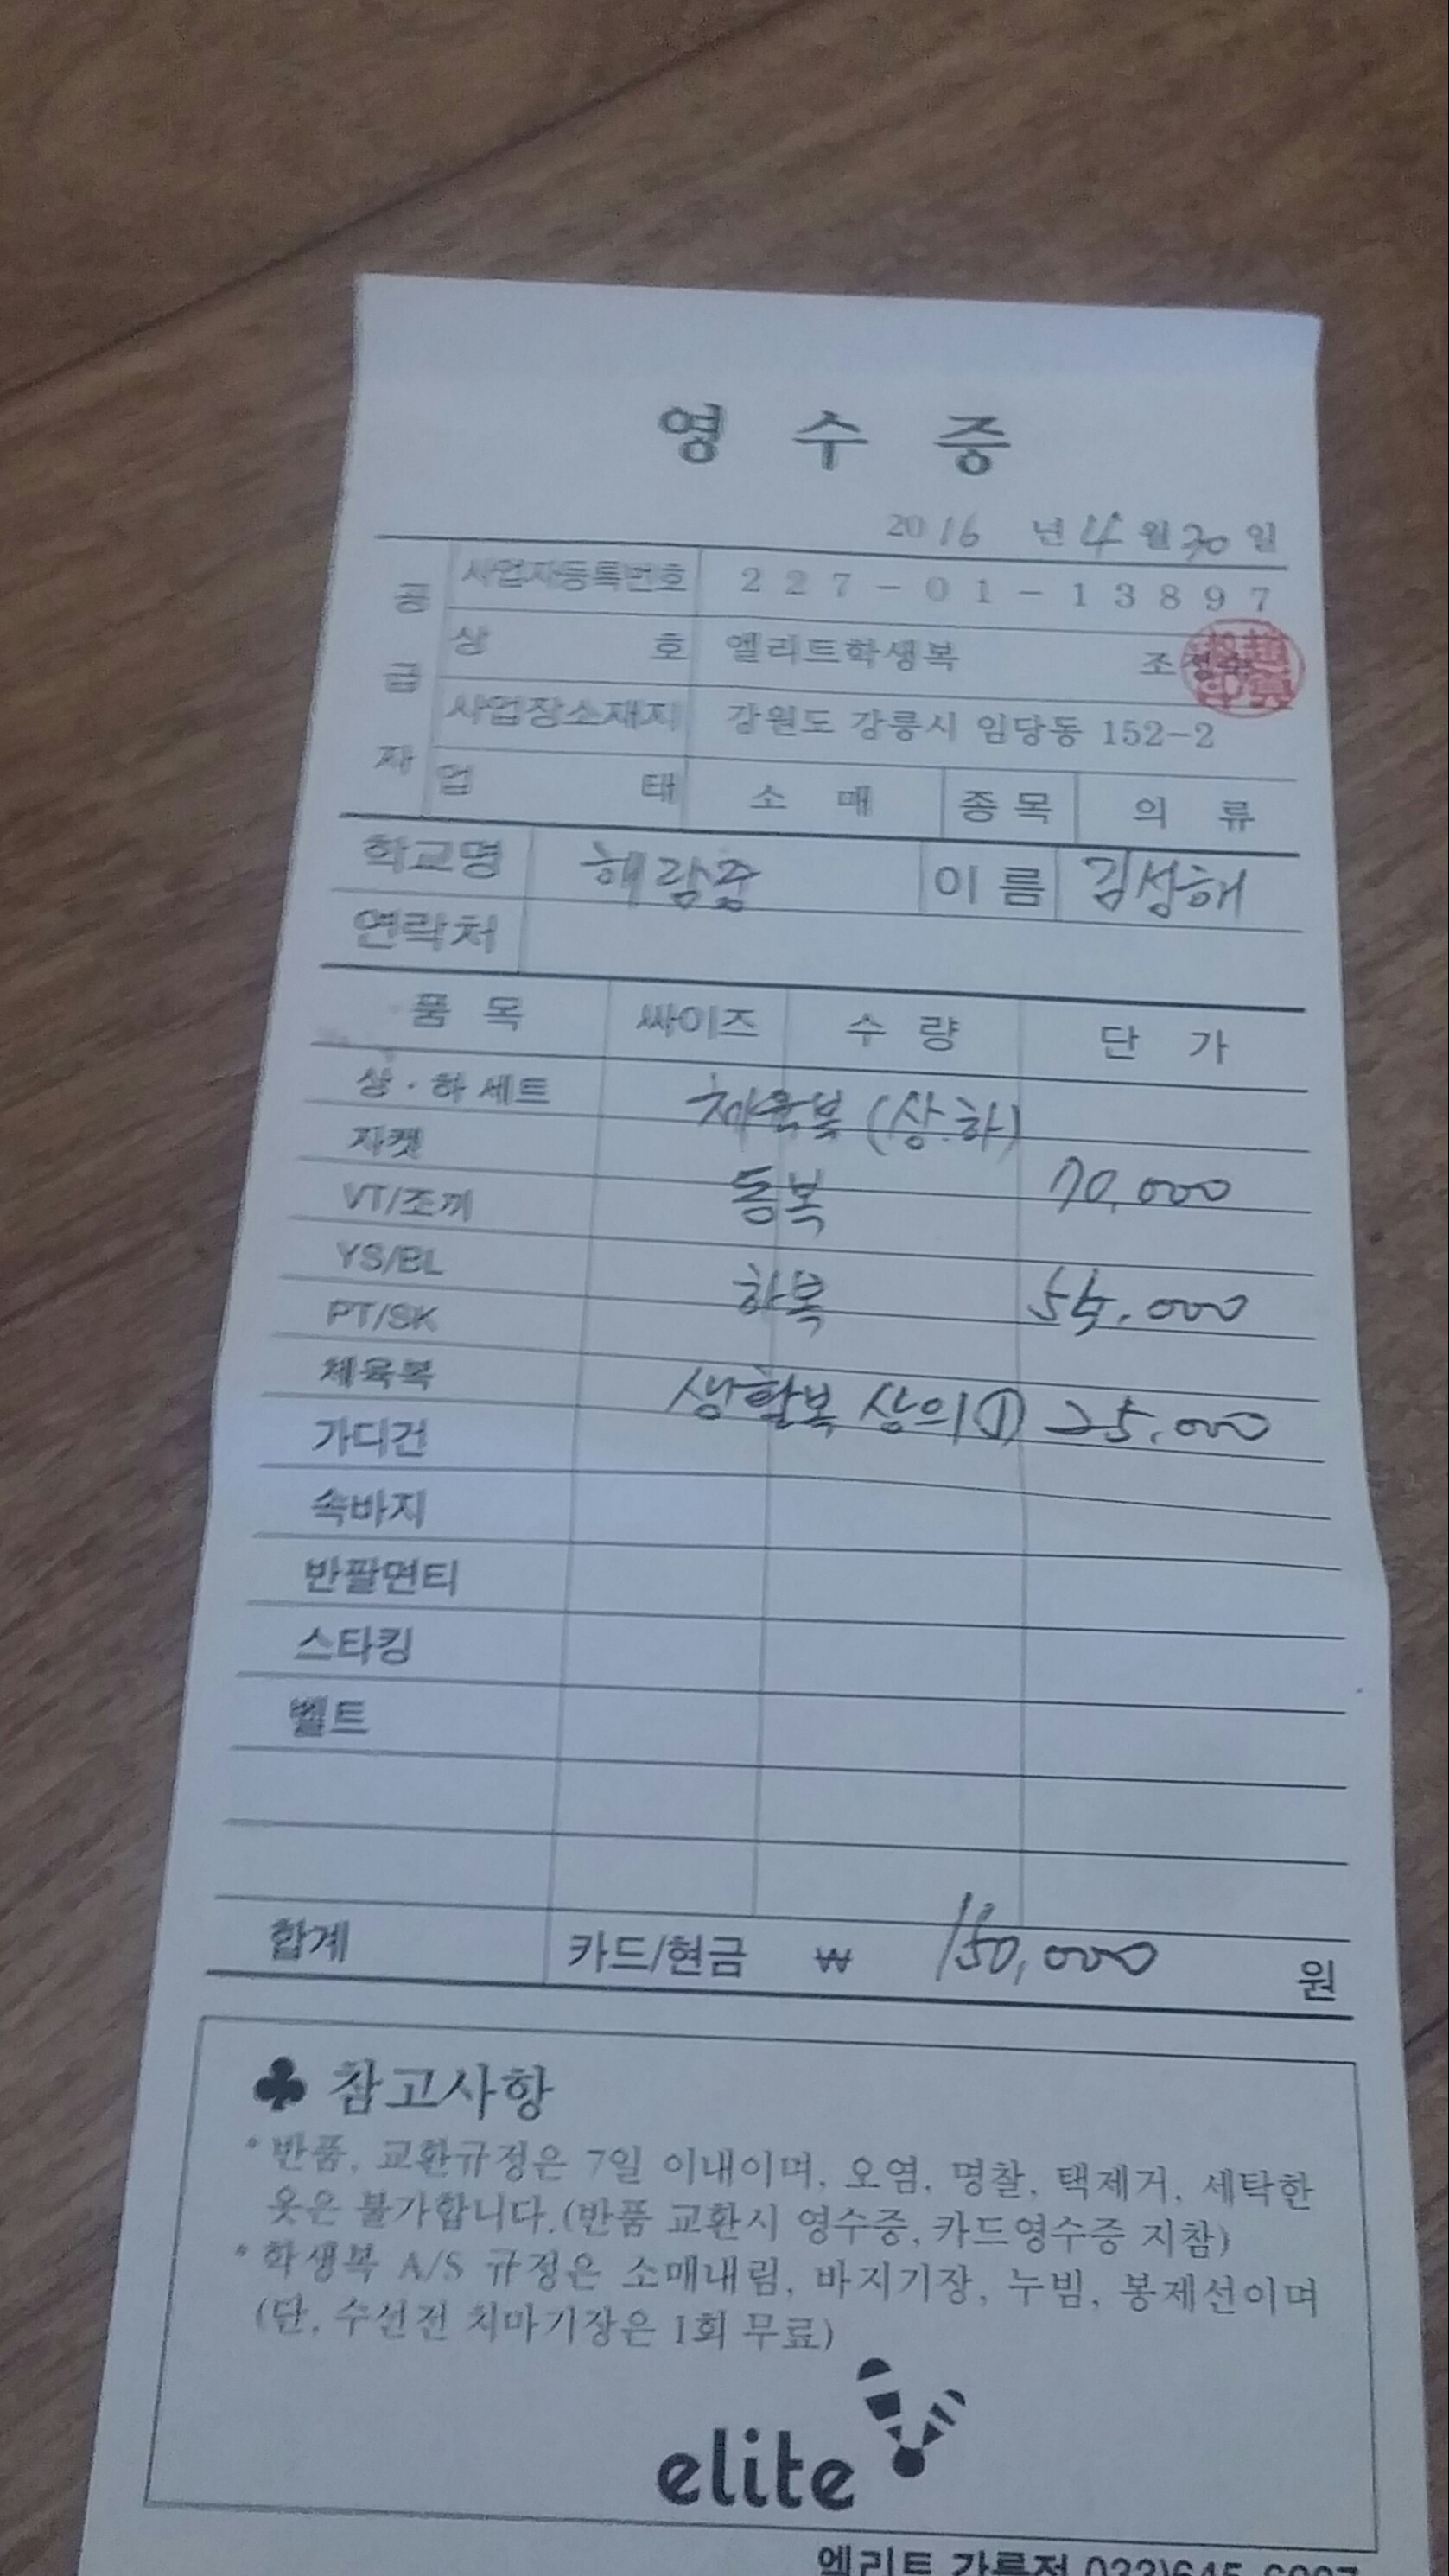 영 수 증
2016 년 4 월 30 일
공급자
사업자등록번호 227-01-13897
상 호 엘리트학생복 조
사업장소재지 강원도 강릉시 임당동 152-2
업 태 소 매 종목 의 류
학교명 해람중 이름 김성해
연락처
품 목 싸이즈 수 량 단 가
상·하 세트 체육복 (상.하)
자켓
VT/조끼 동복 70,000
YS/BL
PT/SK 하복 55,000
체육복
가디건 생활복 상의① 25,000
속바지
반팔면티
스타킹
벨트
합계 카드/현금 ₩ 150,000 원
♣ 참고사항
* 반품, 교환규정은 7일 이내이며, 오염, 명찰, 택제거, 세탁한
옷은 불가합니다.(반품 교환시 영수증, 카드영수증 지참)
* 학생복 A/S 규정은 소매내림, 바지기장, 누빔, 봉제선이며
(단, 수선전 치마기장은 1회 무료)
elite
엘리트 강릉점